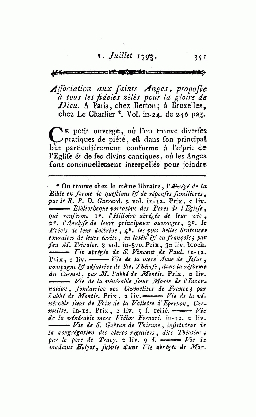 1. Juillet 1783. 341
Association aux saints Anges, proposée
à tous les fideles zélés pour la gloire de
Dieu. A Paris, chez Berton ; à Bruxelles,
chez Le Charlier *. Vol. in-24. de 246 pag.
CE petit ouvrage, où l'on trouve diverses
pratiques de piété, est dans son principal
but particuliérement conforme à l'esprit de
l'Eglise & de ses divins cantiques, où les Anges
sont continuellement interpellés pour joindre
* On trouve chez le même libraire, l'Abrégé de la
Bible en forme de questions & de réponses familieres,
par le R. P. D. 2 vol. in-12. Prix, 5 liv.
Bibliotheque portative des Peres de l'Eglise,
qui renferme 1°. l'Histoire abrégée de leur vie ;
2°. l'Analyse de leurs principaux ouvrages, 3°. le
Précis de leur doctrine, 4°. les plus belles sentences
de leurs écrits, en latin & en françois, par
feu M. Tricalet. 9 vol. in-8vo. Prix, liv. broch.
Vie abrégée de S. Vincent de Paul. in-12.
Prix, 2 liv. Vie de la mere Anne de Jesus,
compagne & de Ste. Thérèse, dans la réforme
du Carmel, par M. l'abbé de Montis. Prix, 2 liv.
Vie de la vénérable sœur Marie de l'Incarnation,
fondatrice des Carmelites de France, par
l'abbé de Montis. Prix, 2 liv. Vie de la vénérable
sœur de Foix de la Valette d'Epernon, Carmelite.
in-12. Prix, 2 liv. 5 s. relié. Vie
de la vénérable mere in-12. 2 liv.
Vie de S. Gaëtan de Thienne, instituteur de
la congrégation des clercs réguliers, dits Théatins,
par le pere de Tracy. 2 liv. 9 s. Vie de
madame Helyot, jointe d'une Vie abrégée de Mar-